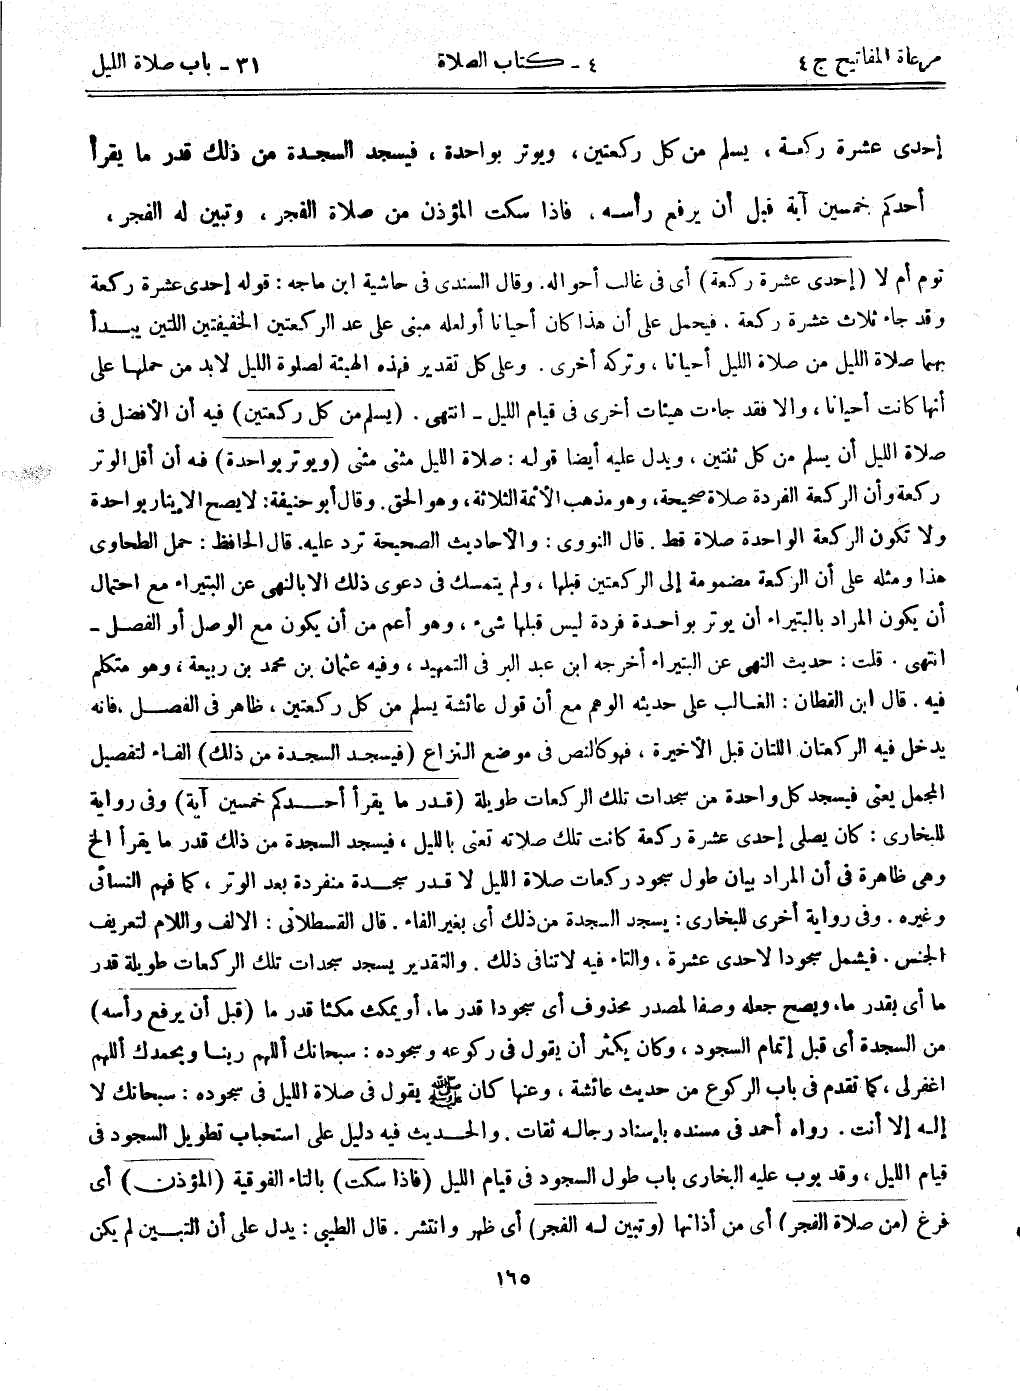 مرعاة المفاتيح ج ٤ ٤ - كتاب الصلاة ٣١ - باب صلاة الليل
إحدى عشرة ركعة ، يسلم من كل ركعتين، ويوتر بواحدة ، فيسجد السجدة من ذلك قدر ما يقرأ
أحدكم خمسين آية قبل أن يرفع رأسه، فاذا سكت المؤذن من صلاة الفجر ، وتبين له الفجر ،
نوم أم لا (إحدى عشرة ركعة) أى فى غالب أحواله. وقال السندى فى حاشية ابن ماجه : قوله إحدى عشرة ركعة
وقد جاء ثلاث عشرة ركعة . فيحمل على أن هذا كان أحيانا أو لعله مبنى على عد الركعتين الخفيفتين اللتين يبدأ
بهما صلاة الليل من صلاة الليل أحيانا ، وتركه أخرى . وعلى كل تقدير فهذه الهيئة لصلوة الليل لابد من حملها على
أنها كانت أحيانا ، والا فقد جاءت هيئات أخرى فى قيام الليل - انتهى . (يسلم من كل ركعتين) فيه أن الأفضل فى
صلاة الليل أن يسلم من كل ثنتين ، ويدل عليه أيضا قوله : صلاة الليل مثنى مثنى (ويوتر بواحدة) فيه أن أقل الوتر
ركعة وأن الركعة الفردة صلاة صحيحة، وهو مذهب الأئمة الثلاثة، وهو الحق. وقال أبو حنيفة: لايصح الإيتار بواحدة
ولا تكون الركعة الواحدة صلاة قط . قال النووى : والأحاديث الصحيحة ترد عليه. قال الحافظ : حمل الطحاوى
هذا ومثله على أن الركعة مضمومة إلى الركعتين قبلها ، ولم يتمسك فى دعوى ذلك الا بالنهى عن البتيراء مع احتمال
أن يكون المراد بالبتيراء أن يوتر بواحدة فردة ليس قبلها شىء ، وهو أعم من أن يكون مع الوصل أو الفصل -
انتهى . قلت : حديث النهى عن البتيراء أخرجه ابن عبد البر فى التمهيد ، وفيه عثمان بن محمد بن ربيعة ، وهو متكلم
فيه . قال ابن القطان : الغالب على حديثه الوهم مع أن قول عائشة يسلم من كل ركعتين ، ظاهر فى الفصل ، فانه
يدخل فيه الركعتان اللتان قبل الأخيرة ، فهو كالنص فى موضع النزاع (فيسجد السجدة من ذلك) الفاء لتفصيل
المجمل يعنى فيسجد كل واحدة من سجدات تلك الركعات طويلة (قدر ما يقرأ أحدكم خمسين آية) وفى رواية
للبخارى : كان يصلى إحدى عشرة ركعة كانت تلك صلاته تعنى بالليل ، فيسجد السجدة من ذلك قدر ما يقرأ الخ
وهى ظاهرة فى أن المراد بيان طول سجود ركعات صلاة الليل لا قدر سجدة منفردة بعد الوتر ، كما فهم النسائى
وغيره . وفى رواية أخرى للبخارى : يسجد السجدة من ذلك أى بغير الفاء . قال القسطلانى : الالف واللام لتعريف
الجنس . فيشمل سجودا لاحدى عشرة ، والتاء فيه لاتنافى ذلك . والتقدير يسجد سجدات تلك الركعات طويلة قدر
ما أى بقدر ما، ويصح جعله وصفا لمصدر محذوف أى سجودا قدر ما، أو يمكث مكثا قدر ما (قبل أن يرفع رأسه)
من السجدة أى قبل إتمام السجود ، وكان يكثر أن يقول فى ركوعه وسجوده : سبحانك أللهم ربنا وبحمدك أللهم
اغفرلى ، كما تقدم فى باب الركوع من حديث عائشة ، وعنها كان ﷺ يقول فى صلاة الليل فى سجوده : سبحانك لا
إله إلا أنت . رواه أحمد فى مسنده باسناد رجاله ثقات . والحديث فيه دليل على استحباب تطويل السجود فى
قيام الليل ، وقد بوب عليه البخارى باب طول السجود فى قيام الليل (فاذا سكت) بالتاء الفوقية (المؤذن) أى
فرغ (من صلاة الفجر) أى من أذانها (وتبين له الفجر) أى ظهر وانتشر . قال الطيبى : يدل على أن التبين لم يكن
١٦٥